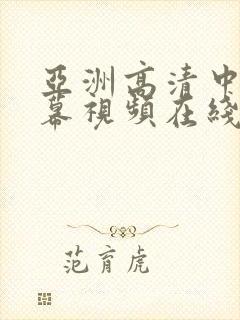 亞洲高清中
幕視頻在綫
范育虎